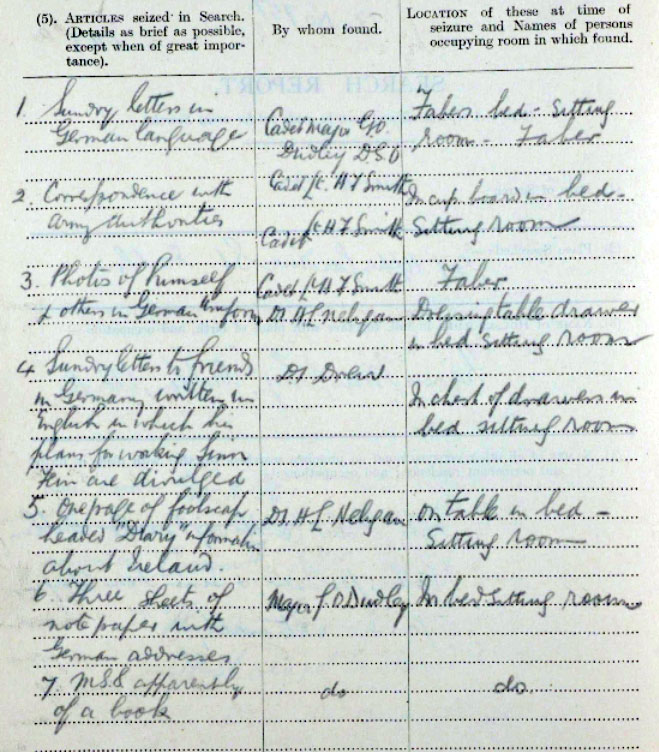 (5). ARTICLES seized in Search.
(Details as brief as possible,
except when of great impor-
tance).
By whom found.
LOCATION of these at time of
seizure and Names of persons
occupying room in which found.
1 Sundry letters in
German language
Cadet Major
Dudley D.S.O
Fabers bed - sitting
room - Faber
2. Correspondence with
army authorities
Cadet H F Smith
Cadet H F Smith
In cup board in bed -
Sitting room
3. Photos of himself
& others in German uniform
Cadet H F Smith
DI H L Neligan
Faber
Dressing table drawer
in bed sitting room
4 Sundry letters to friends
in Germany written in
English in which his
plans for working Sinn
Fein are divulged
DI
In chest of drawers in
bed sitting room
5. One page of foolscap
headed "Diary" information
about Ireland.
DI H L Neligan
On table in bed -
Sitting room
6. Three sheets of
note paper with
German addresses
Major Dudley
In bed sitting room
7. M.S.S apparently
of a book
do
do.